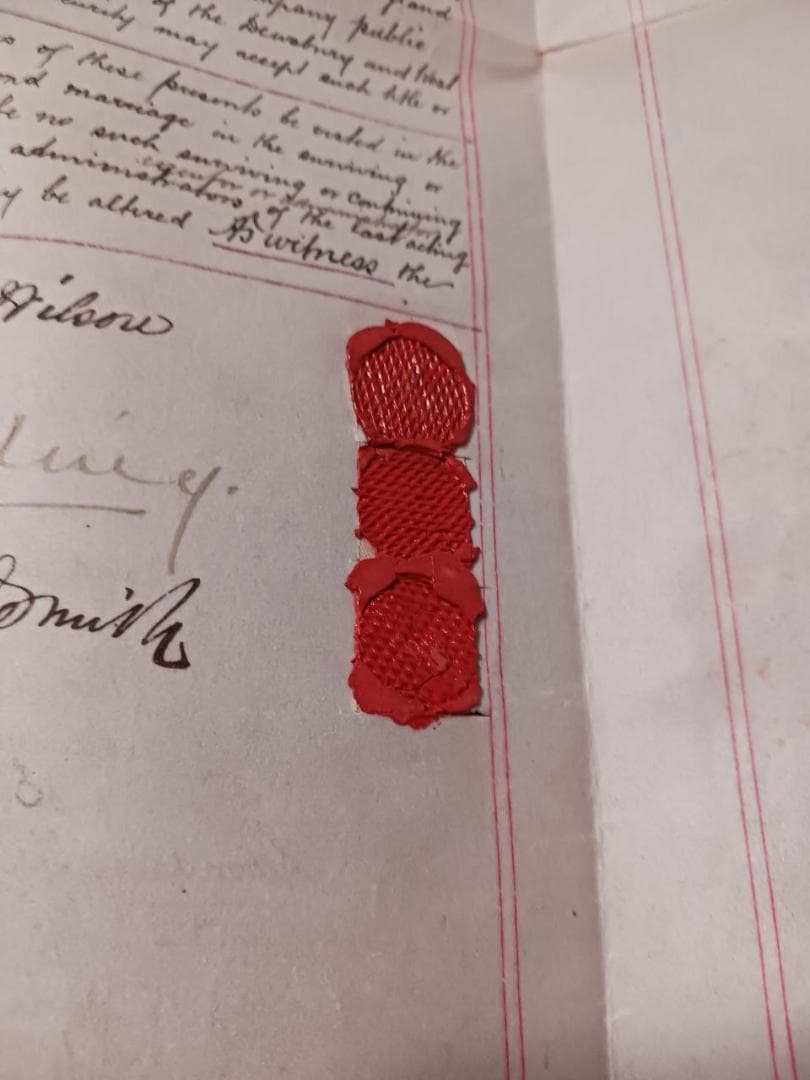 grand
Company public
of the Dewsbury and West
security may accept such title or
of these presents be vested in the
and marriage in the surviving or
be no such surviving or continuing
executor or
administrators of the last acting
be altered As witness the
Wilson
Smith